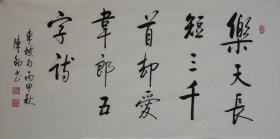 樂天長
短三千
首却愛
韋郎五
字詩
東坡句丙申秋